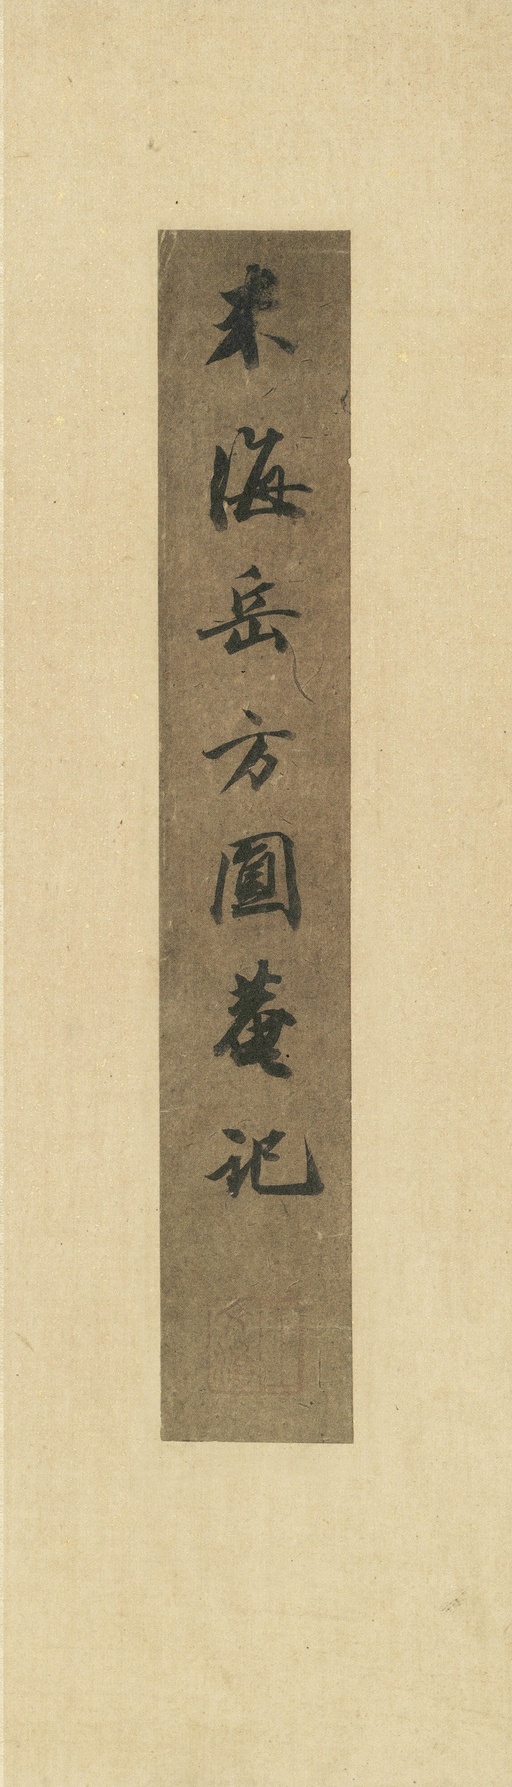 米海岳方圓菴記